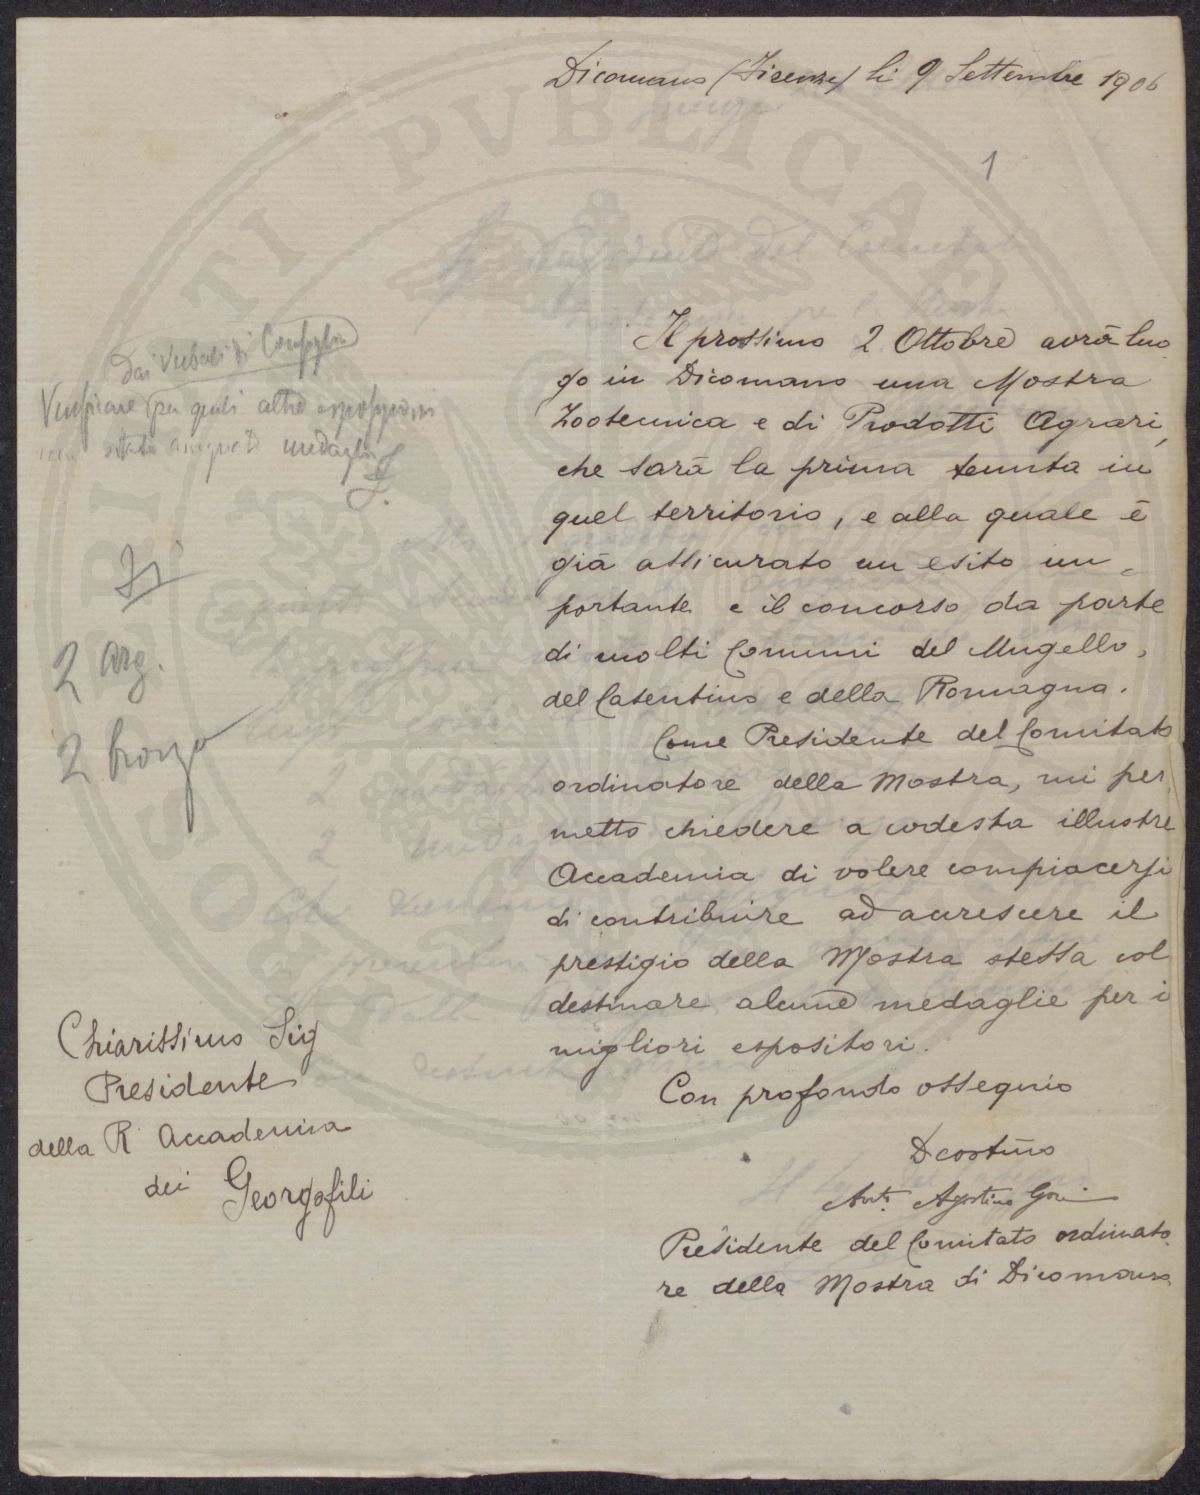 Dicomano (Firenze) li 9 Settembre 1906
1
Il prossimo 2 Ottobre avrà luo-
go in Dicomano una Mostra
Zootecnica e di Prodotti Agrari,
che sarà la prima tenuta in
quel territorio, e alla quale è
già assicurato un esito im-
portante e il concorso da parte
di molti Comuni del Mugello,
del Casentino e della Romagna.
Come Presidente del Comitato
ordinatore della Mostra, mi per-
metto chiedere a codesta illustre
Accademia di volere compiacersi
di contribuire ad accrescere il
prestigio della Mostra stessa col
destinare alcune medaglie per i
migliori espositori.
Con profondo ossequio
Dev.tissimo
Agostino Gori
Presidente del Comitato ordinato-
re della Mostra di Dicomano
Chiarissimo Sig
Presidente
della R Accademia
dei Georgofili
dai Verbali di Consiglio
Verificare per quali altre esposizioni
medaglie
2 arg.
2 bronzo
PUBLICAE